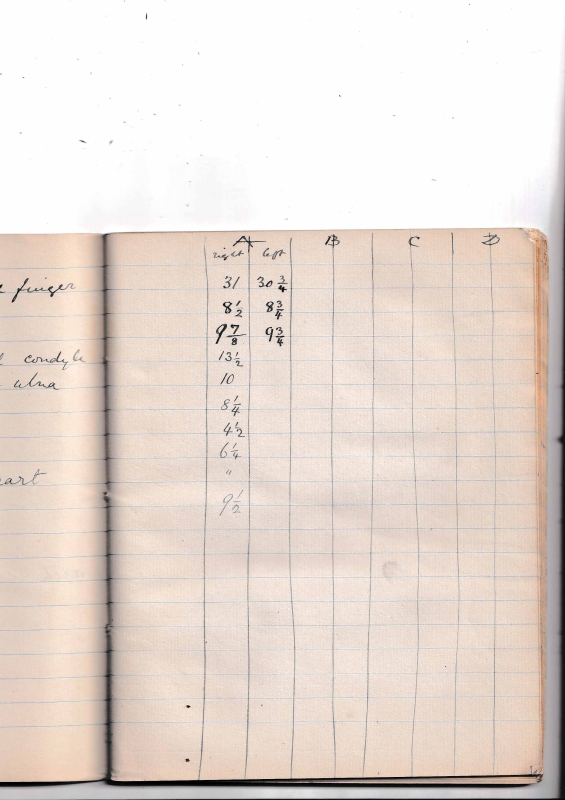 finger
condyle
ulna
A B C D
right left
31 30 3/4
8 1/2 8 3/4
9 7/8 9 3/4
13 1/2
10
8 1/4
4 1/2
6 1/4
"
9 1/2